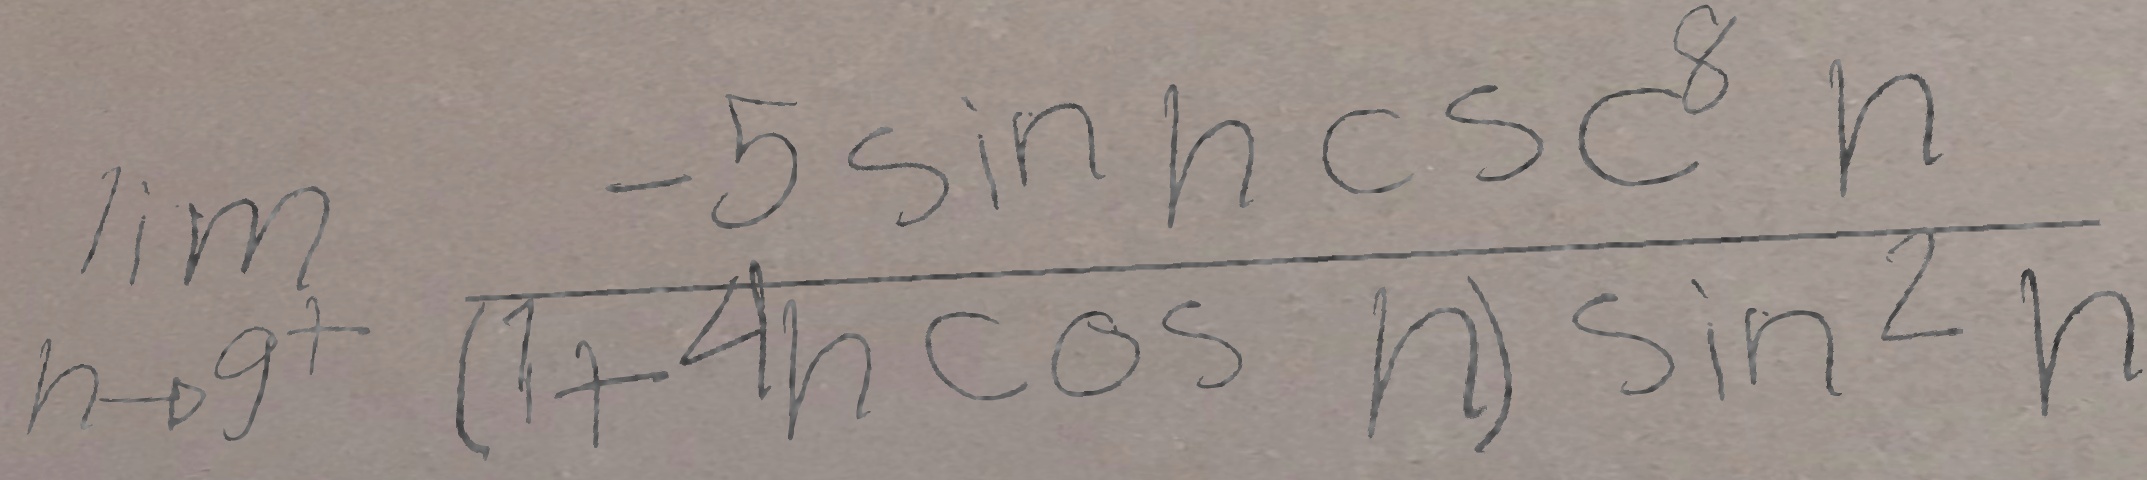 \lim_{h \to 9^+} \frac{-5 \sin h \csc^8 h}{(1 + 4h \cos h) \sin^2 h}